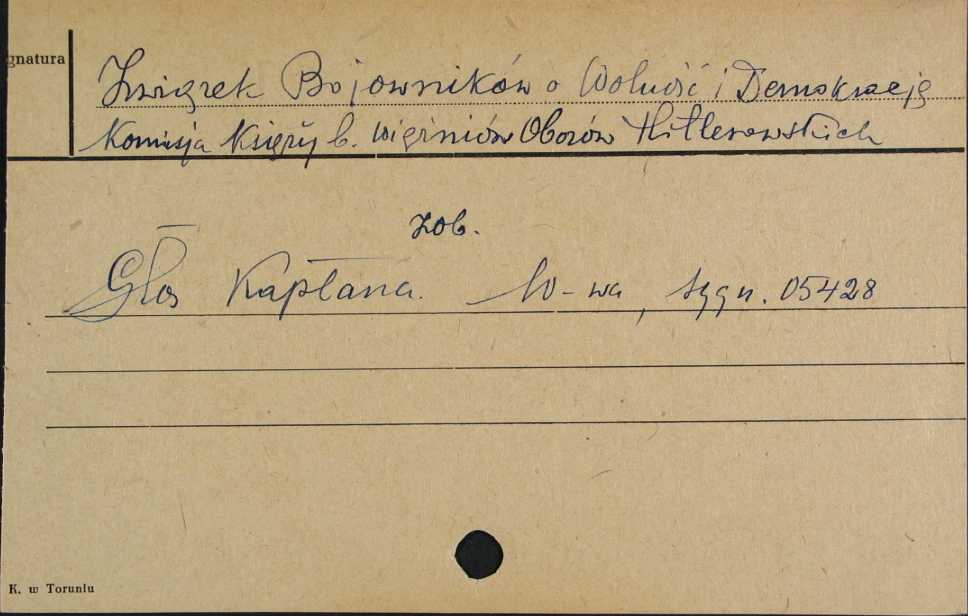 gnatura
Związek Bojowników o Wolność i Demokrację
Komisja Księży b. Więźniów Obozów Hitlerowskich
zob.
Głos Kapłana. W-wa, sygn. 05428
K. w Toruniu